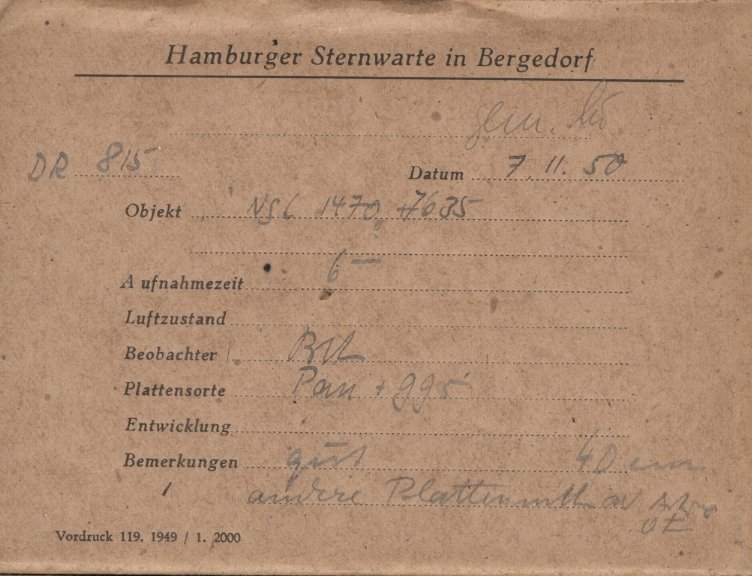 Hamburger Sternwarte in Bergedorf
gem.
DR 815
Datum 7. 11. 50
Objekt NGC 1470 7635
Aufnahmezeit 6
Luftzustand
Beobachter
Plattensorte Pan + gg5
Entwicklung
Bemerkungen gut 40 cm
andere
Vordruck 119. 1949 / 1. 2000